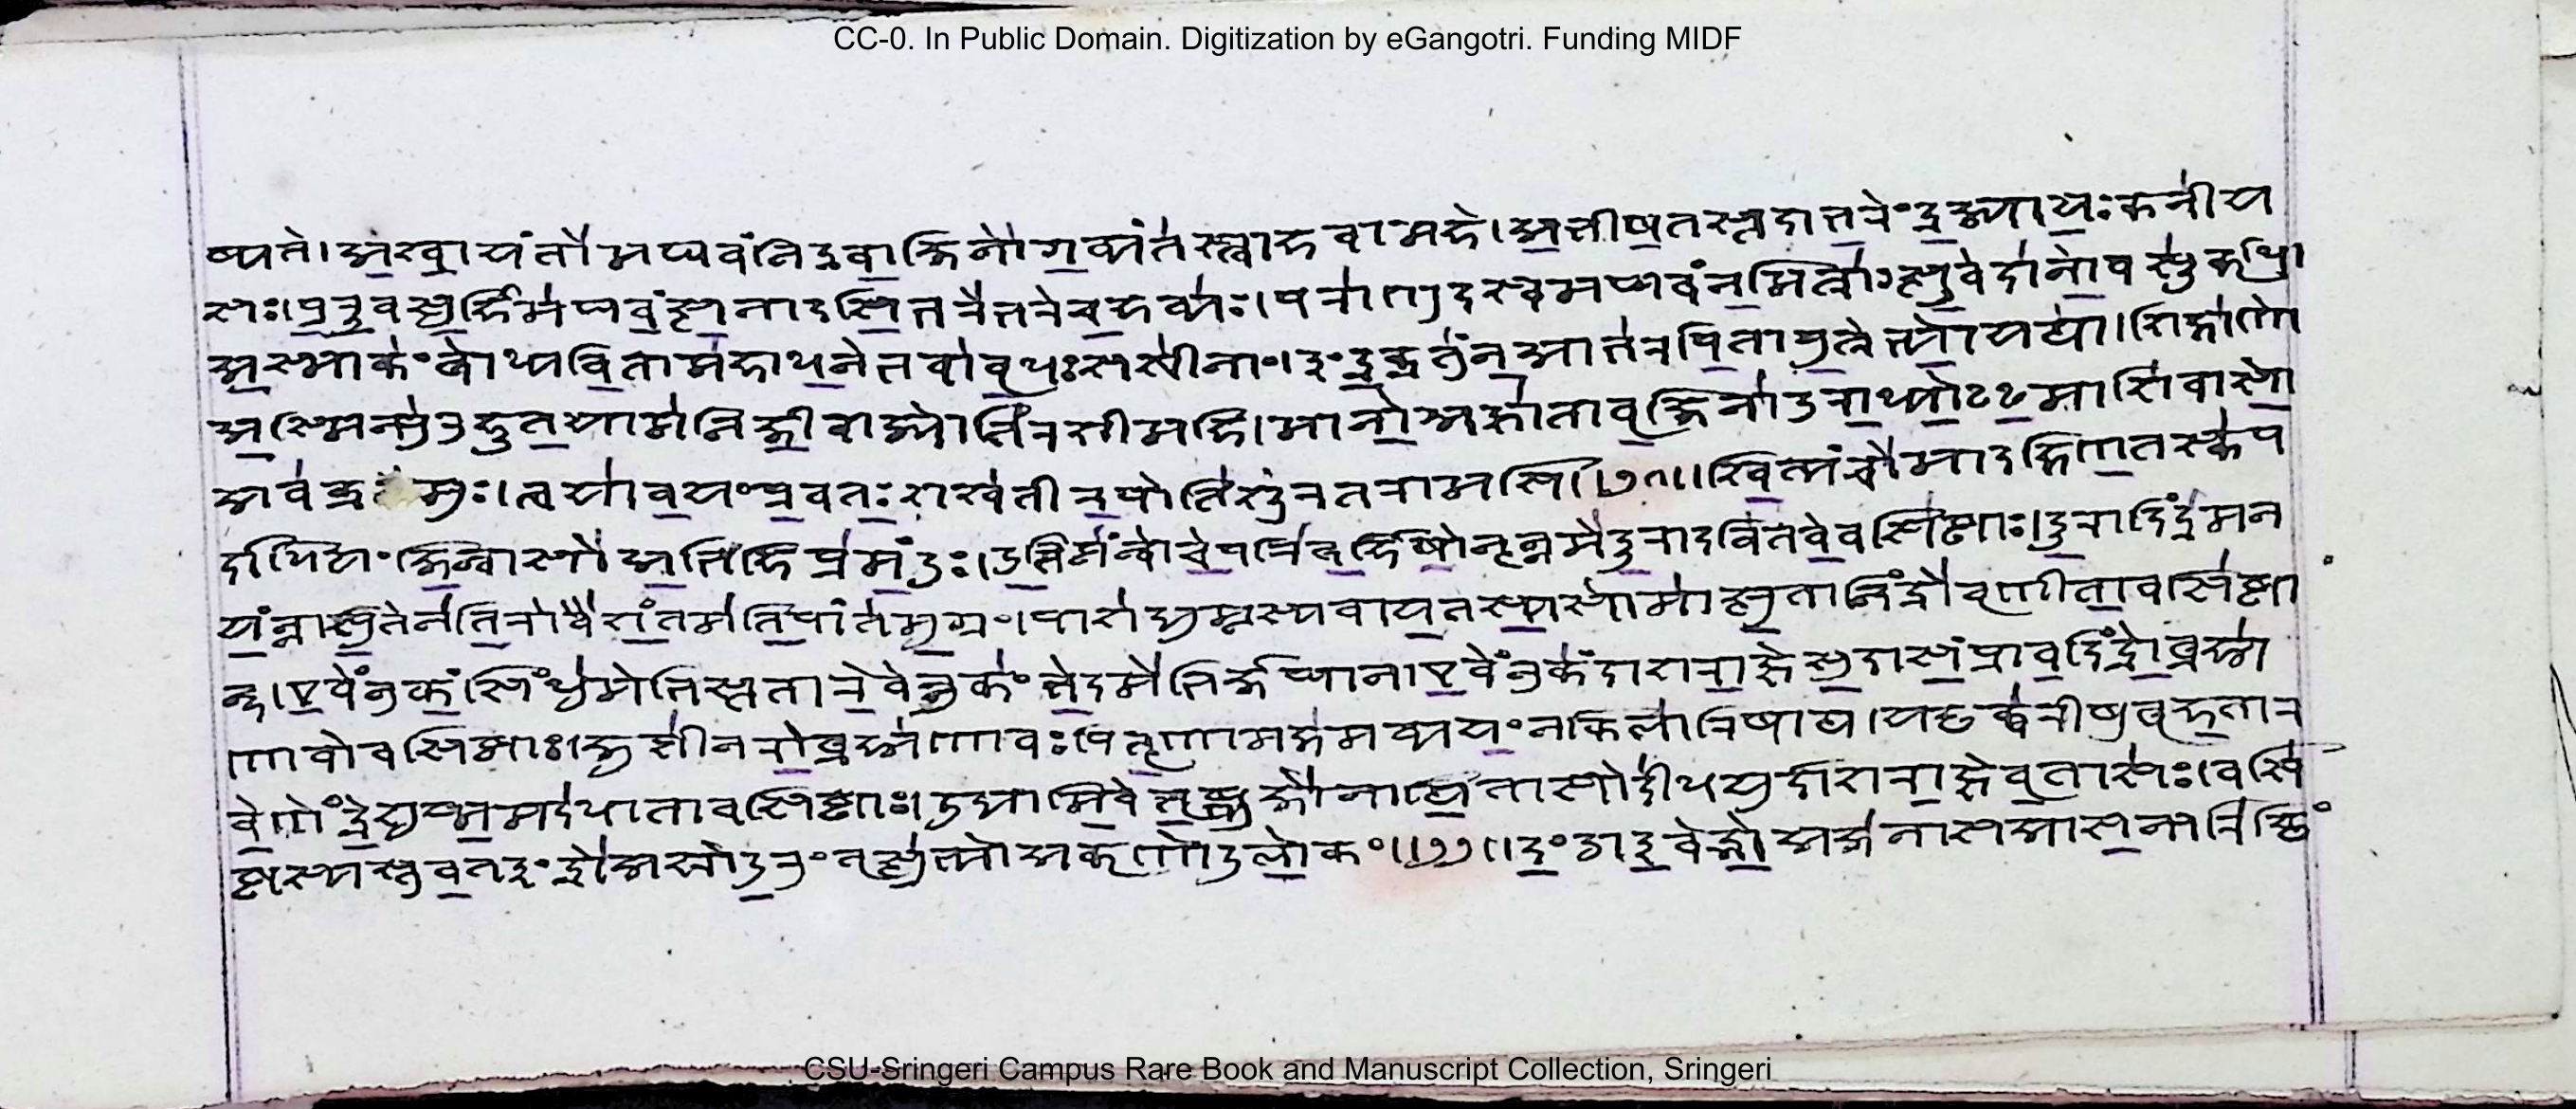 CC-0. In Public Domain. Digitization by eGangotri. Funding MIDF
ष्यते। अश्वायंतो मघवंनिंद्र वाजिनो गव्यंतस्त्वा हवामहे। अभीषतस्तदा भरेंद्र ज्यायः कनीय
सः। पुरूवसुर्हि मघवंत्सनादसि भरेभरे च हव्यः। परा णुदस्व मघवंनमित्रांत्सुवेदा नो वसू कृधि।
अस्माकं बोध्यविता महाधने भवा वृधः सखीनां। इंद्र क्रतुं न आ भर पिता पुत्रेभ्यो यथा। शिक्षा णो
अस्मिन्पुरुहूत यामनि जीवा ज्योतिरशीमहि। मा नो अज्ञाता वृजिना दुराध्यो३ऽमाशिवासो
अव क्रमुः। त्वया वयं प्रवतः शश्वतीरपोति शूर तरामसि॥२१॥ श्वित्यंचो मा दक्षिणतस्कप
र्दा धियंजिन्वासो अभि हि प्रमंदुः। उत्तिष्ठन्वोचे परि बर्हिषो नॄन्न मे दूरादवितवे वसिष्ठाः। दूरादिंद्रमन
यंन्ना सुतेन तिरो वैशंतमति पांतमुग्रं। पाशद्युम्नस्य वायतस्य सोमात्सुतादिंद्रो वृणीता वसिष्ठा
न्। एवेंनु कं सिंधुमेभिस्ततारेवेन्नु कं भेदमेभिर्जघान। एवेंनु कं दाशराज्ञे सुदासं प्रावदिंद्रो ब्रह्म
णा वो वसिष्ठाः। जुष्टी नरो ब्रह्मणा वः पितॄणामक्षमव्ययं न किला रिषाथ। यच्छक्वरीषु बृहता र
वेणेंद्रे शुष्ममदधाता वसिष्ठाः। उद्द्यामिवेत्तृष्णजो नाथितासोदीधयुर्दाशराज्ञे वृतासः। वसि
ष्ठस्य स्तुवत इंद्रो अश्रोदुरुं तृत्सुभ्यो अकृणोदु लोकं॥२२॥ दंडा इवेद्गो अजनास आसन्परिच्छि
CSU-Sringeri Campus Rare Book and Manuscript Collection, Sringeri